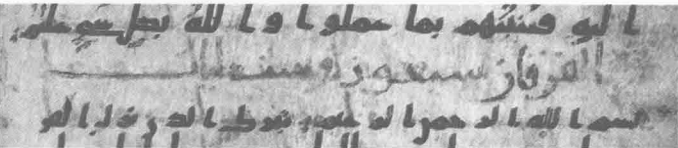 اليه فينبئهم بما عملوا والله بكل شي عليم
الفرقان سبعون وسبع ايات
بسم الله الرحمن الرحيم تبرك الذي نزل الفر